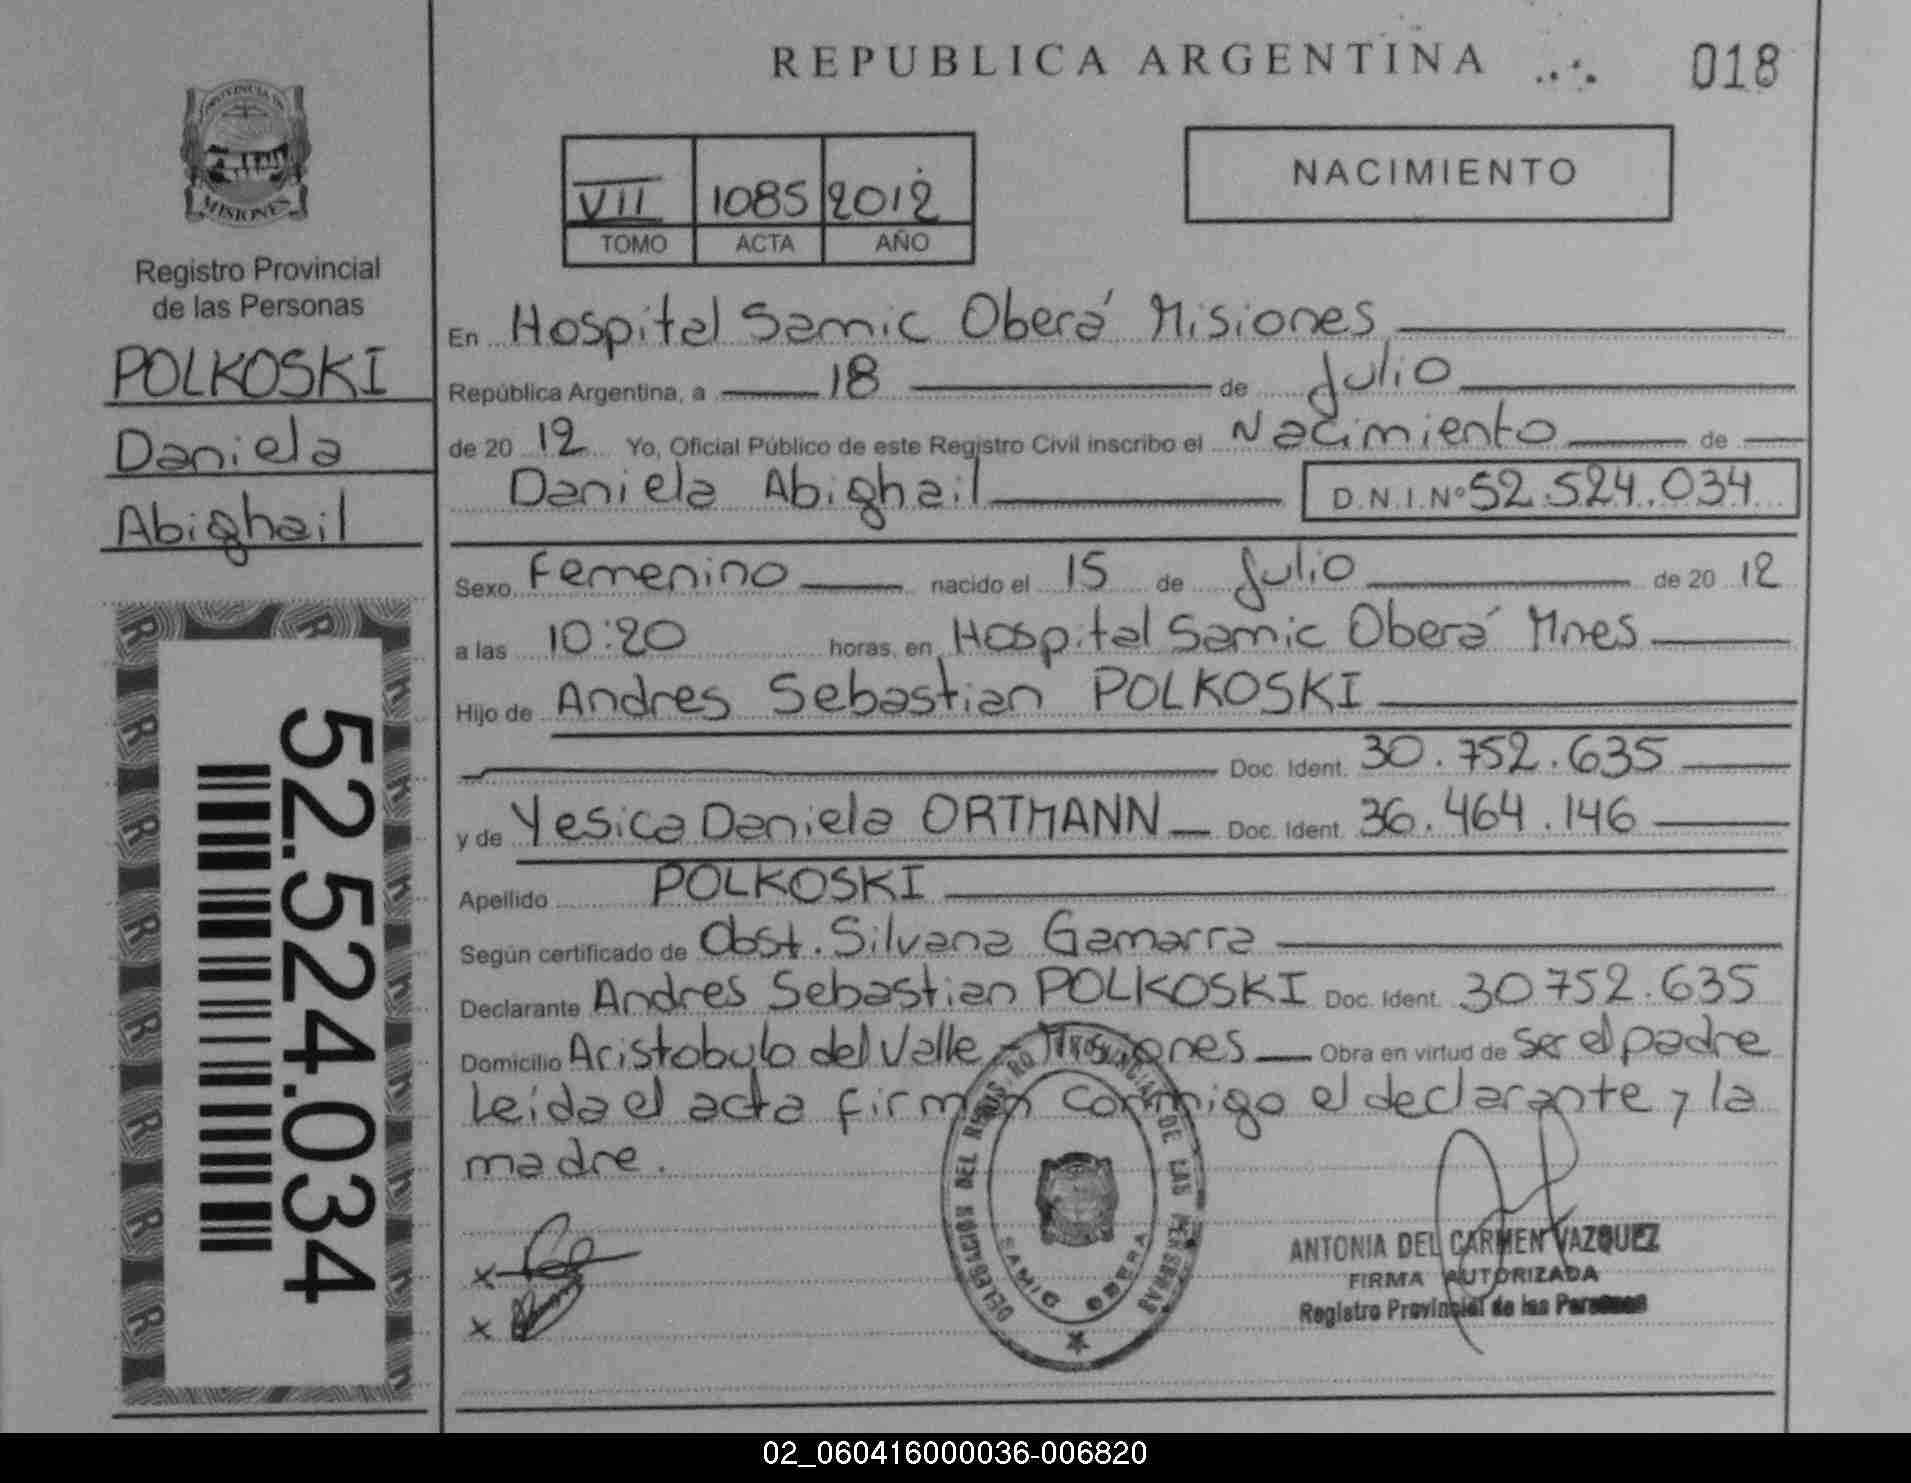 REPUBLICA ARGENTINA
018
PROVINCIA DE
MISIONES
Registro Provincial
de las Personas
POLKOSKI
Daniela
Abighail
52.524.034
VII 1085 2012
TOMO ACTA AÑO
NACIMIENTO
En Hospital Samic Oberá Misiones
República Argentina, a 18 de Julio
de 20 12 Yo, Oficial Público de este Registro Civil inscribo el Nacimiento de
Daniela Abighail D.N.I.Nº 52.524.034
Sexo Femenino nacido el 15 de Julio de 20 12
a las 10:20 horas, en Hospital Samic Oberá Mnes
Hijo de Andres Sebastian POLKOSKI
Doc. Ident. 30.752.635
y de Yesica Daniela ORTMANN Doc. Ident. 36.464.146
Apellido POLKOSKI
Según certificado de Obst. Silvana Gamarra
Declarante Andres Sebastian POLKOSKI Doc. Ident. 30.752.635
Domicilio Aristobulo del Valle - Misiones Obra en virtud de ser el padre
Leida el acta firman conmigo el declarante y la
madre.
DELEGACION DEL REGISTRO PROVINCIAL DE LAS PERSONAS
SAMIC OBERA
x
x
ANTONIA DEL CARMEN VAZQUEZ
FIRMA AUTORIZADA
Registro Provincial de las Personas
02_060416000036-006820